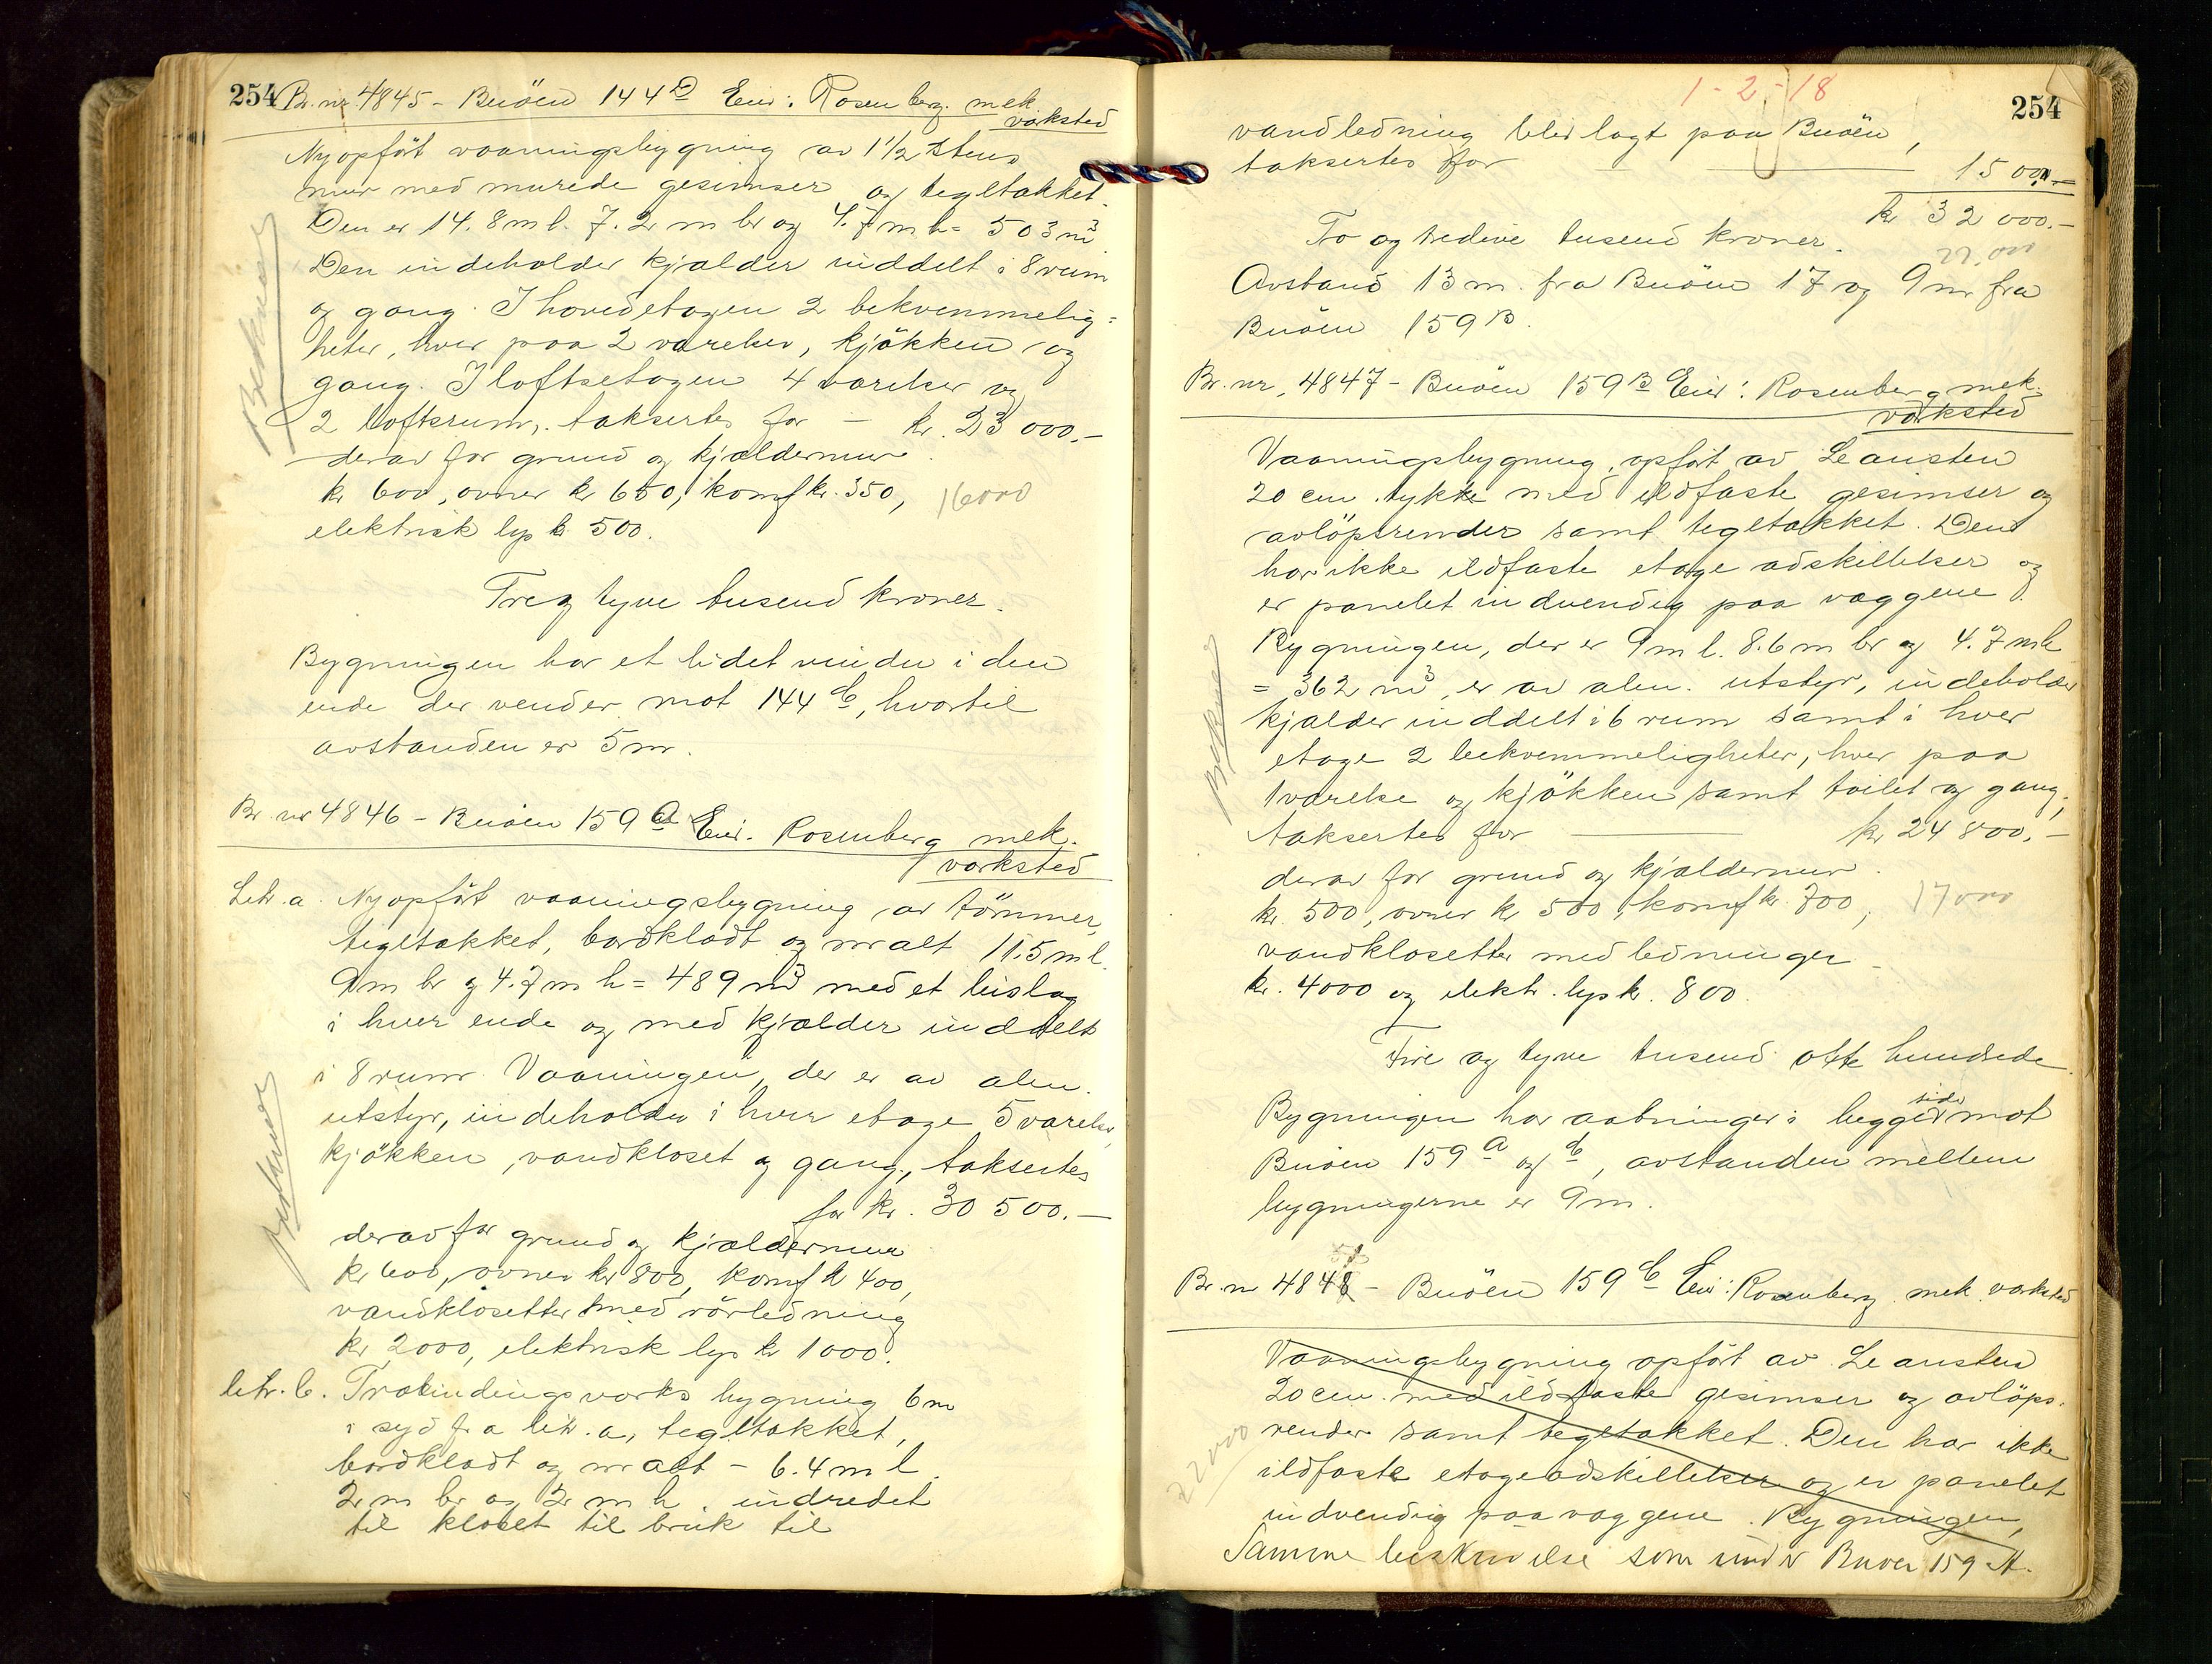 254 Br. nr. 4845 - Buöen 144 D Eier: Rosenberg mek.
værksted
Nyopfört vaaningsbygning av 1 1/2 stens
mur med murede gesimser og tegltækket.
Den er 14.8 m l. 7.2 m br og 4.7 m h = 503 m³
Den indeholder kjælder inddelt i 8 rum
og gang. I hovedetagen 2 bekvemmelig=
heter, hver paa 2 værelser, kjökken og
gang. I loftsetagen 4 værelser og
2 loftsrum, taksertes for - kr. 23 000.-
derav for grund og kjældermur
kr 600, ovner kr 650, komf kr. 350, 16000
elektrisk lys kr 500.
Tre og tyve tusend kroner.
Bygningen har et lidet vindu i den
ende der vender mot 144 C, hvortil
avstanden er 5 m.
Br. nr 4846 - Buöen 159 A Eier. Rosenberg mek.
værksted
Litr. a. Nyopfört vaaningsbygning av tömmer,
tegltækket, bordklædt og malt 11.5 m l.
9 m br og 4.7 m h = 489 m³ med et bislag
i hver ende og med kjælder inddelt
i 8 rum. Vaaningen, der er av alm.
utstyr, indeholder i hver etage 5 værelser,
kjökken, vandkloset og gang, taksertes
for kr. 30 500.-
derav for grund og kjældermur
kr 600, ovner kr 800, komf kr 400,
vandklosetter med rörledning
kr 2000, elektrisk lys kr 1000.
litr. b. Træbindingsværks bygning 6 m
i syd fra litr. a, tegltækket,
bordklædt og malt - 6.4 m l.
2 m br og 2 m h. indredet
til kloset til bruk til
1-2-18
254
vandledning blev lagt paa Buöen,
taksertes for 1500.-
kr 32 000.-
To og tredive tusend kroner.
22.000
Avstand 13 m. fra Buöen 17 og 9 m fra
Buöen 159 B.
Br. nr. 4847 - Buöen 159 B Eier: Rosenberg mek.
værksted
Vaaningsbygning, opfört av Leansten
20 cm. tykke med ildfaste gesimser og
avlöpsrender samt tegltækket. Den
har ikke ildfaste etage adskillelser og
er panelet indvendig paa væggene.
Bygningen, der er 9 m l. 8.6 m br og 4.7 m h
= 362 m³, er av alm. utstyr, indeholder
kjælder inddelt i 6 rum samt i hver
etage 2 bekvemmeligheter, hver paa
1 værelse og kjökken samt toilet og gang,
taksertes for kr 24 800.-
derav for grund og kjældermur
kr. 500, ovner kr 500, komf kr. 700, 17000
vandklosetter med ledninger
kr. 4000 og elektr. lys kr. 800.
Fire og tyve tusend otte hundrede
Bygningen har aabninger i begge sider mot
Buöen 159 A og C, avstanden mellem
bygningerne er 9 m.
Br. nr 4848 - Buöen 159 C Eier: Rosenberg mek. værksted
Vaaningsbygning opfört av Leansten
20 cm. med ildfaste gesimser og avlöps.
render samt tegltækket. Den har ikke
22000
ildfaste etageadskillelser og er panelet
indvendig paa væggene. Bygningen,
Samme beskrivelse som under Buöen 159 A.